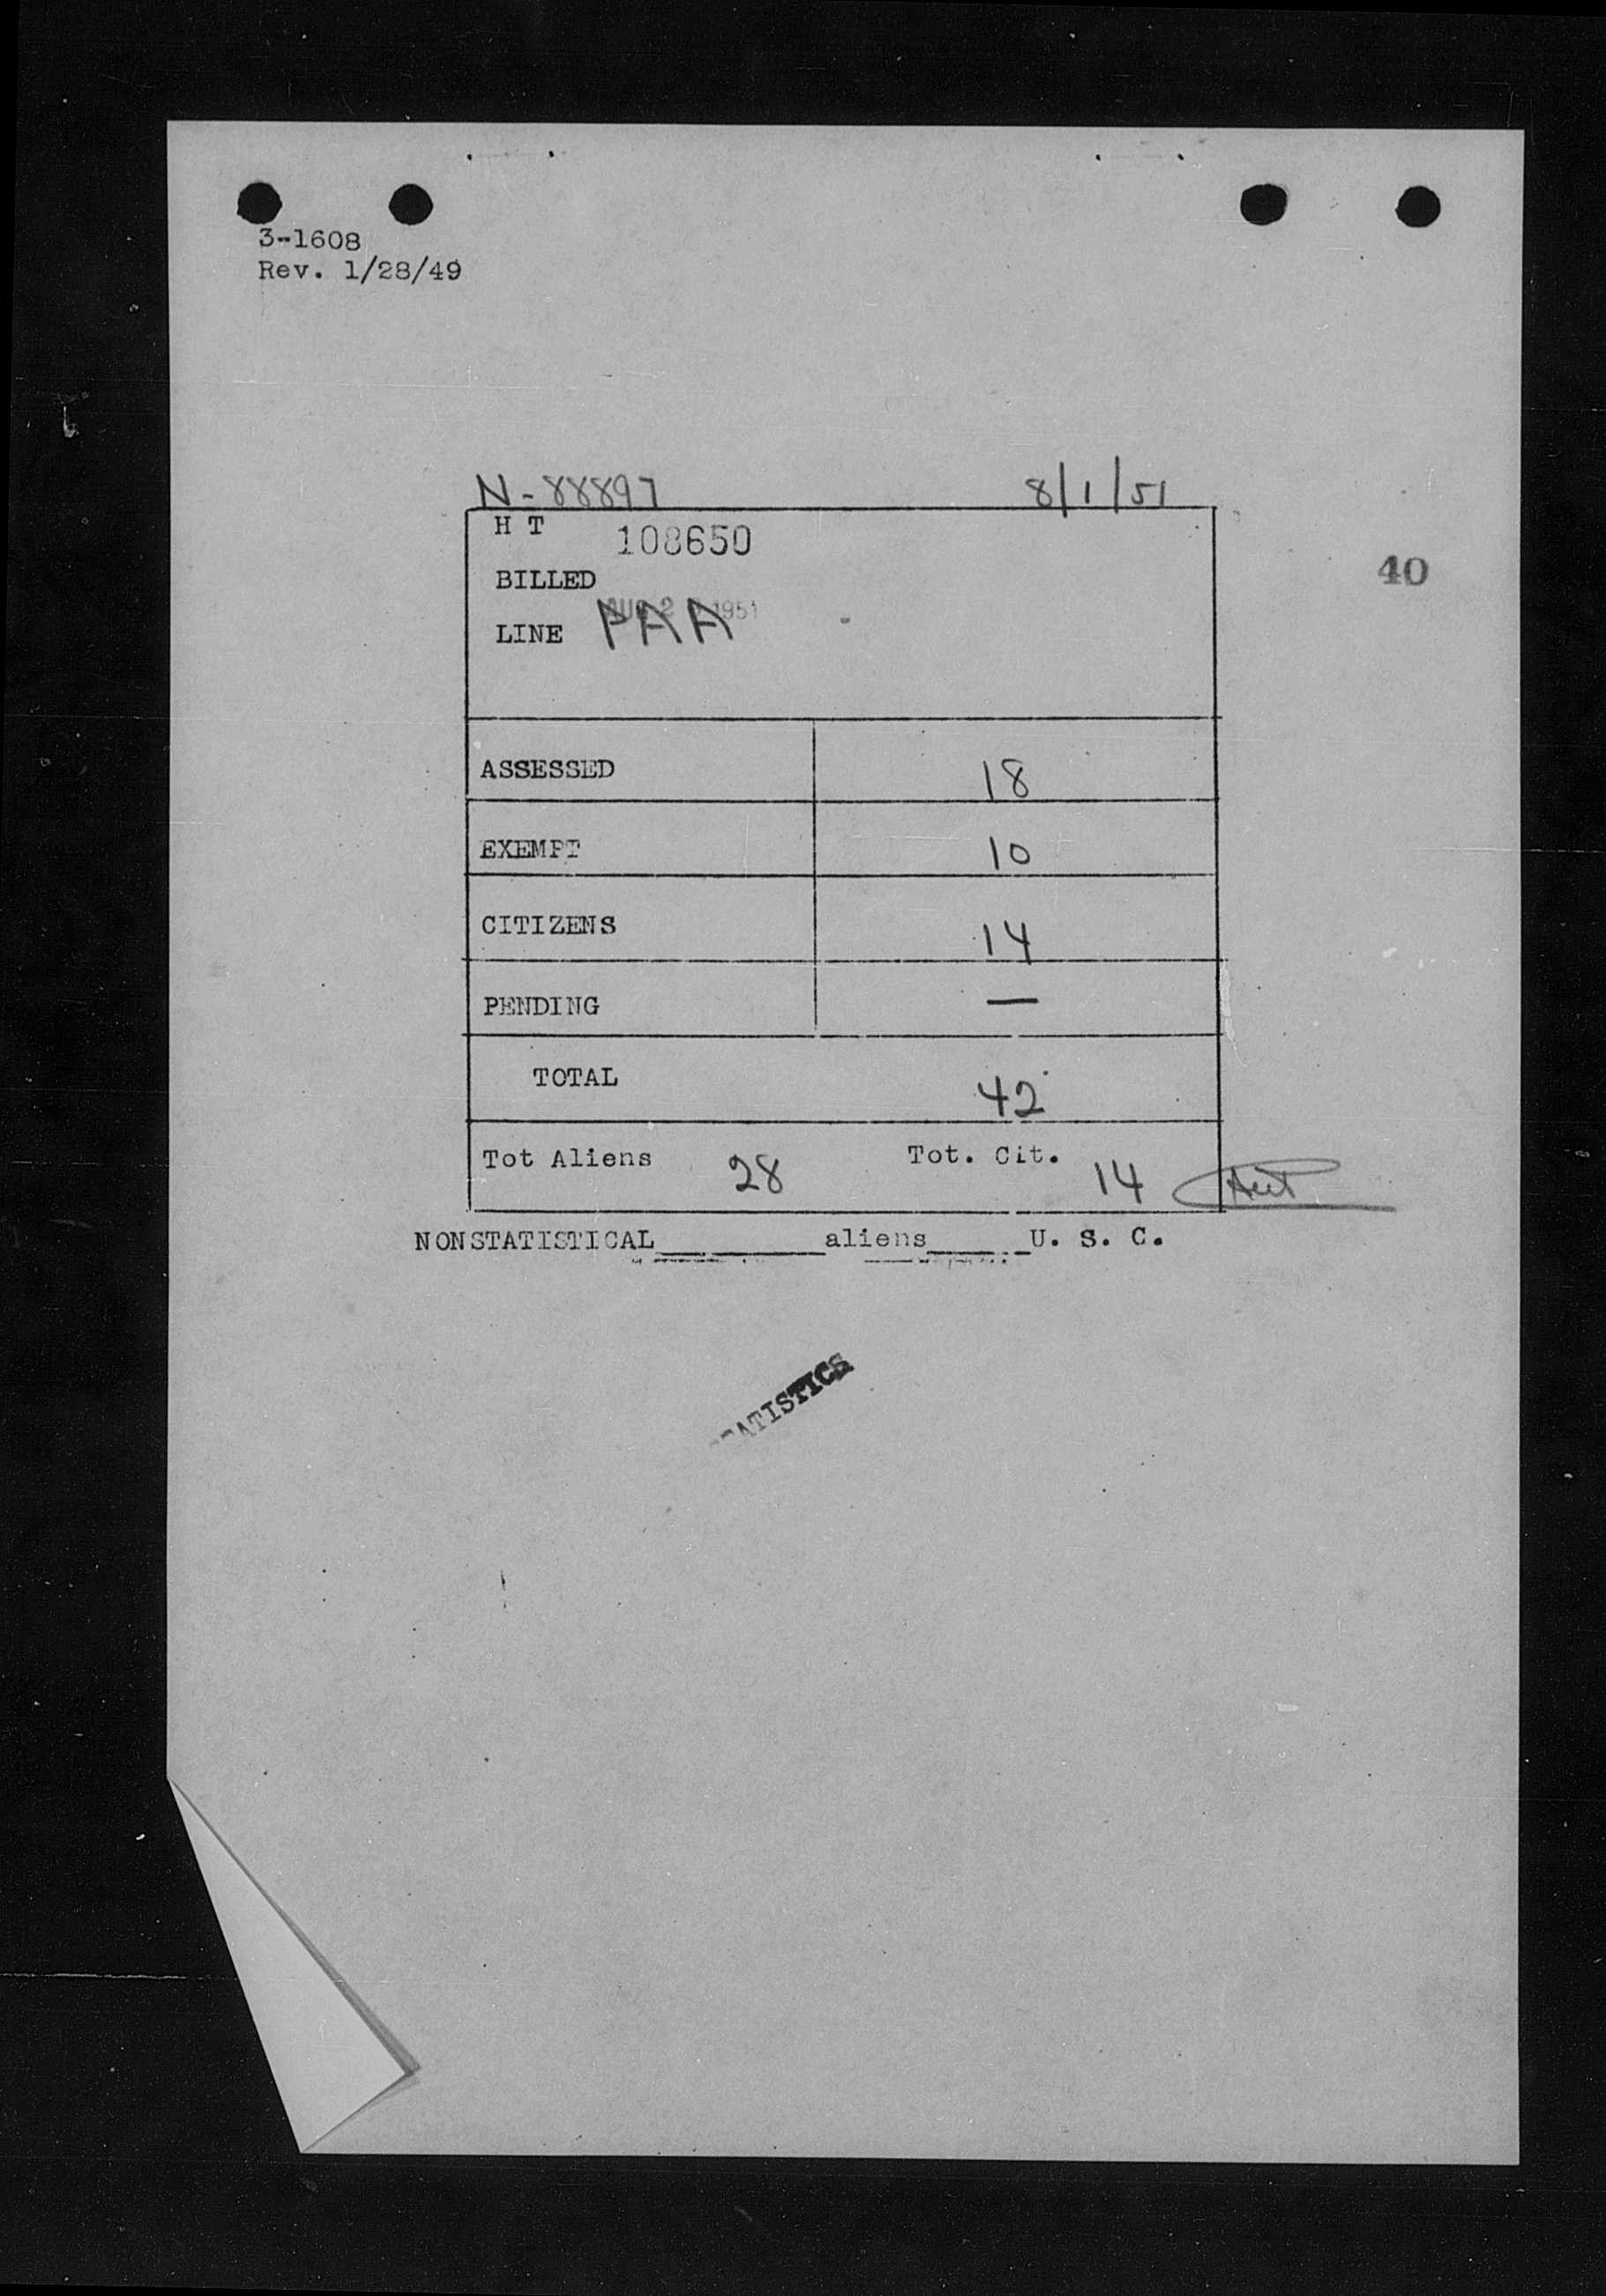 3-1608
Rev. 1/28/49
N-88897 8/1/51
H T 108650
40
BILLED
AUG 2 1951
LINE PAA
ASSESSED 18
EXEMPT 10
CITIZENS 14
PENDING —
TOTAL 42
Tot Aliens 28 Tot. Cit. 14
NONSTATISTICAL__________aliens______U. S. C.
STATISTICS